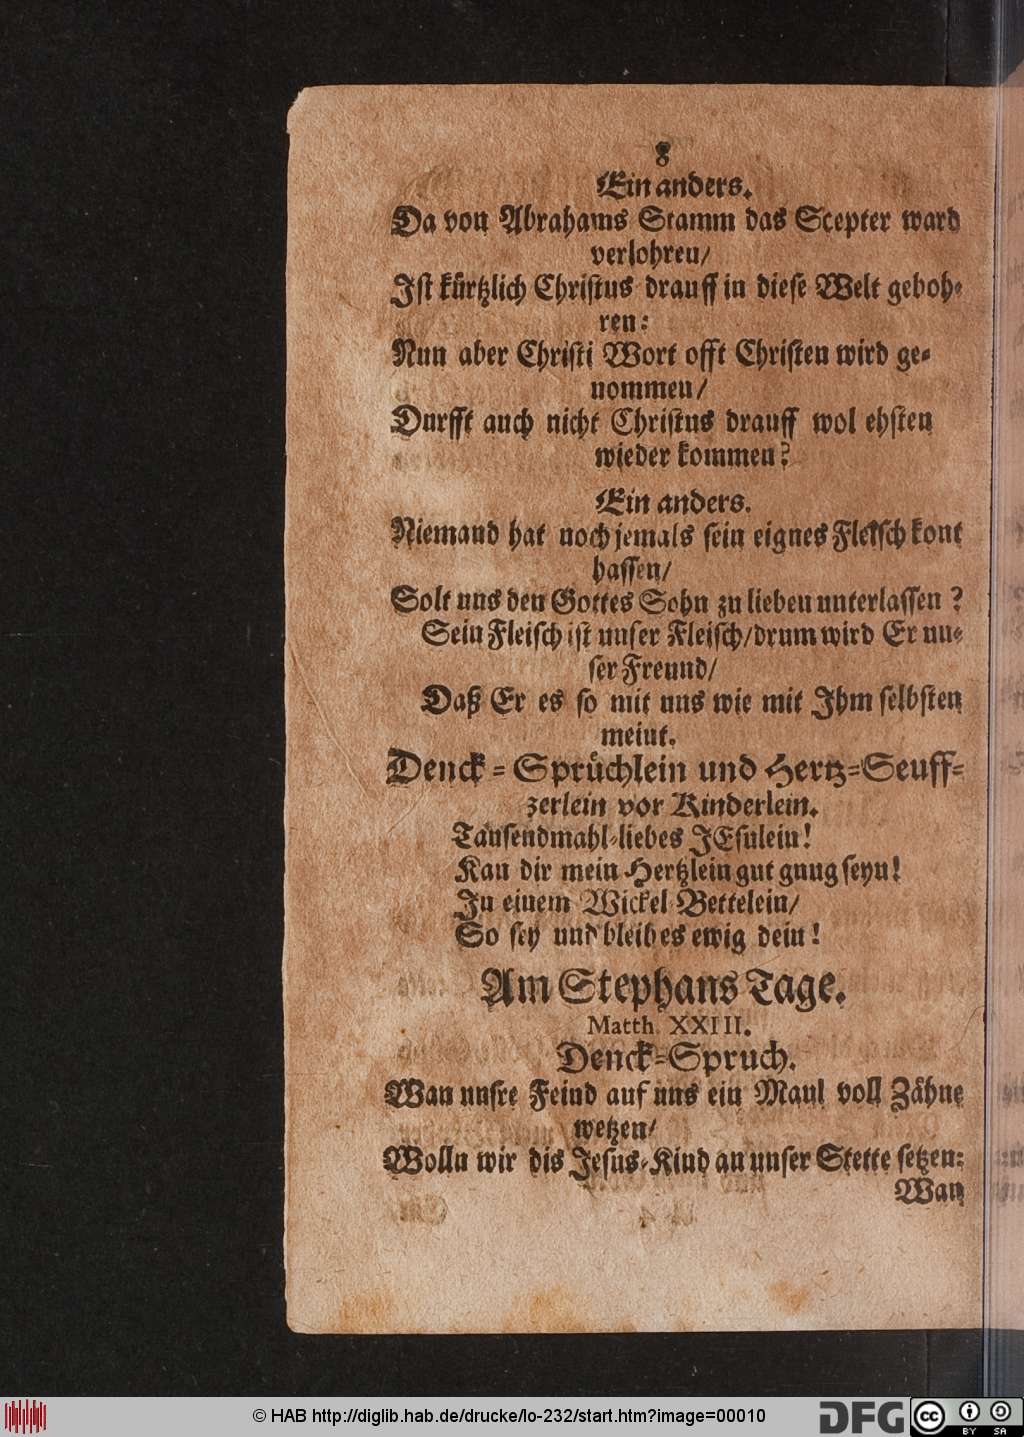 8
Ein anders.
Da von Abrahams Stamm das Scepter ward
verlohren/
Ist kürtzlich Christus drauff in diese Welt geboh-
ren:
Nun aber Christi Wort offt Christen wird ge-
nommen/
Durfft auch nicht Christus drauff wol ehsten
wieder kommen?
Ein anders.
Niemand hat noch jemals sein eignes Fleisch kont
hassen/
Solt uns den Gottes Sohn zu lieben unterlassen?
Sein Fleisch ist unser Fleisch/drum wird Er un-
ser Freund/
Daß Er es so mit uns wie mit Ihm selbsten
meint.
Denck-Sprüchlein und Hertz-Seuff-
zerlein vor Kinderlein.
Tausendmahl-liebes JEsulein!
Kan dir mein Hertzlein gut gnug seyn!
Zu einem Wickel Bettelein/
So sey und bleib es ewig dein!
Am Stephans Tage.
Matth. XXIII.
Denck-Spruch.
Wan unsre Feind auf uns ein Maul voll Zähne
wetzen/
Wolln wir dis Jesus-Kind an unser Stette setzen:
Wan
© HAB http://diglib.hab.de/drucke/lo-232/start.htm?image=00010
DFG
cc
BY SA